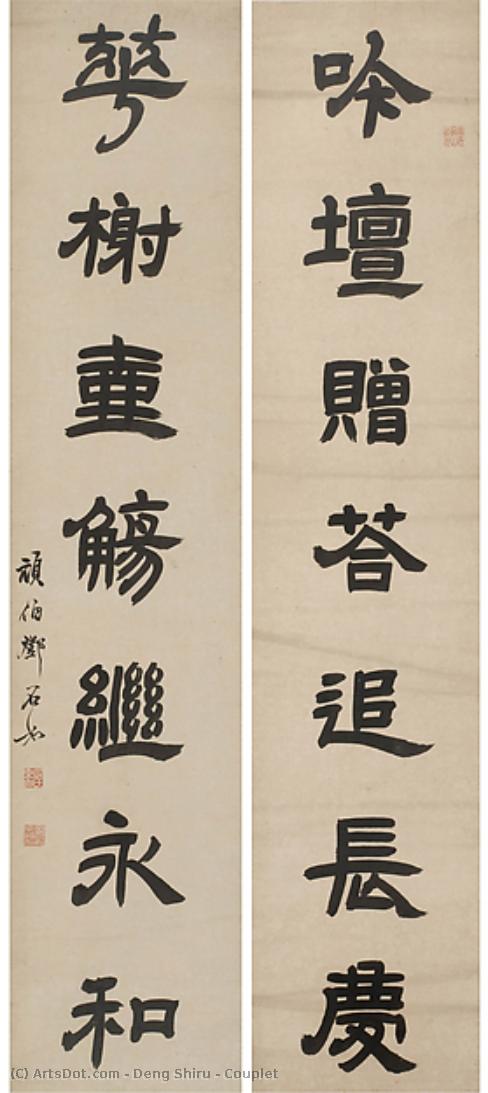 吟壇贈荅追長慶
華榭壺觴繼永和
頑伯鄧石如
(C) ArtsDot.com - Deng Shiru - Couplet